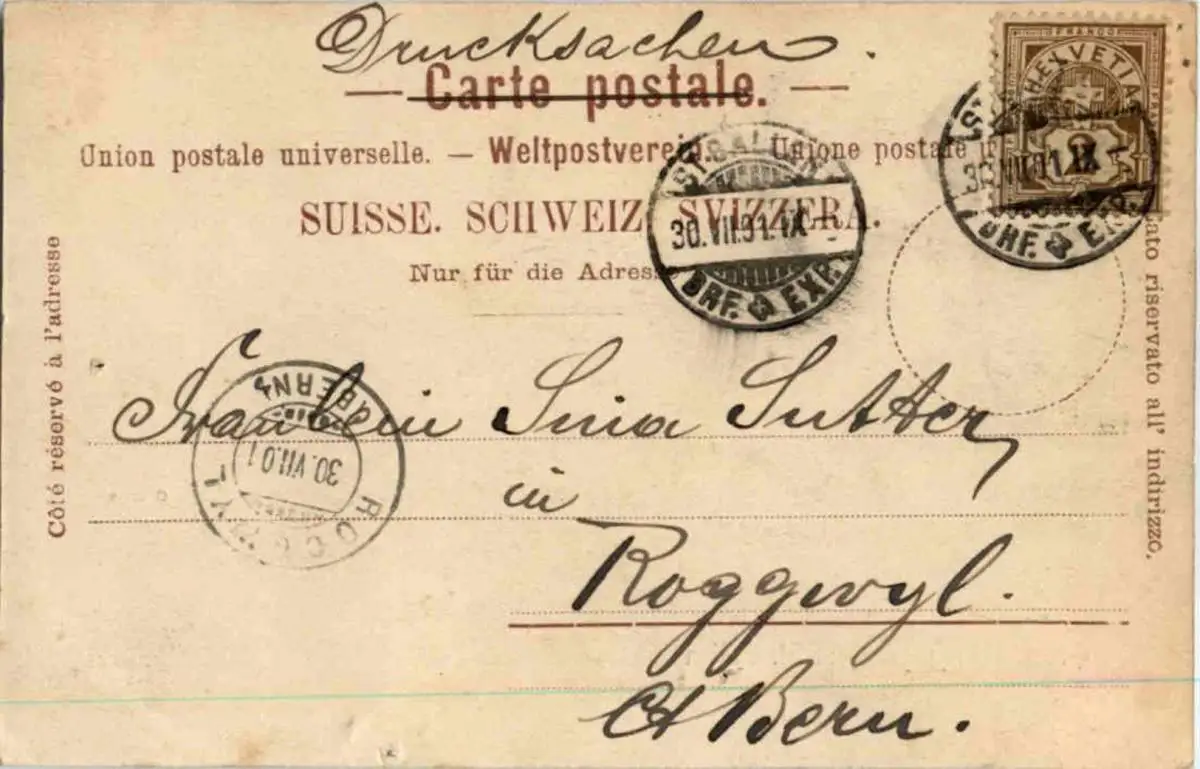 Drucksachen.
— Carte postale. —
Union postale universelle. — Weltpostverein. — Unione postale
SUISSE. SCHWEIZ. SVIZZERA.
Nur für die Adresse
Côté réservé à l'adresse
lato riservato all' indirizzo.
FRANCO
HELVETIA
2
ST. GALLEN
30.VII.01.IX
BRF. EXP.
ST.
30.VII.01.IX
BRF. EXP.
(BERN)
30.VII.01
ROGGWYL
Fräulein Lina Sutter
in
Roggwyl.
Ct Bern.